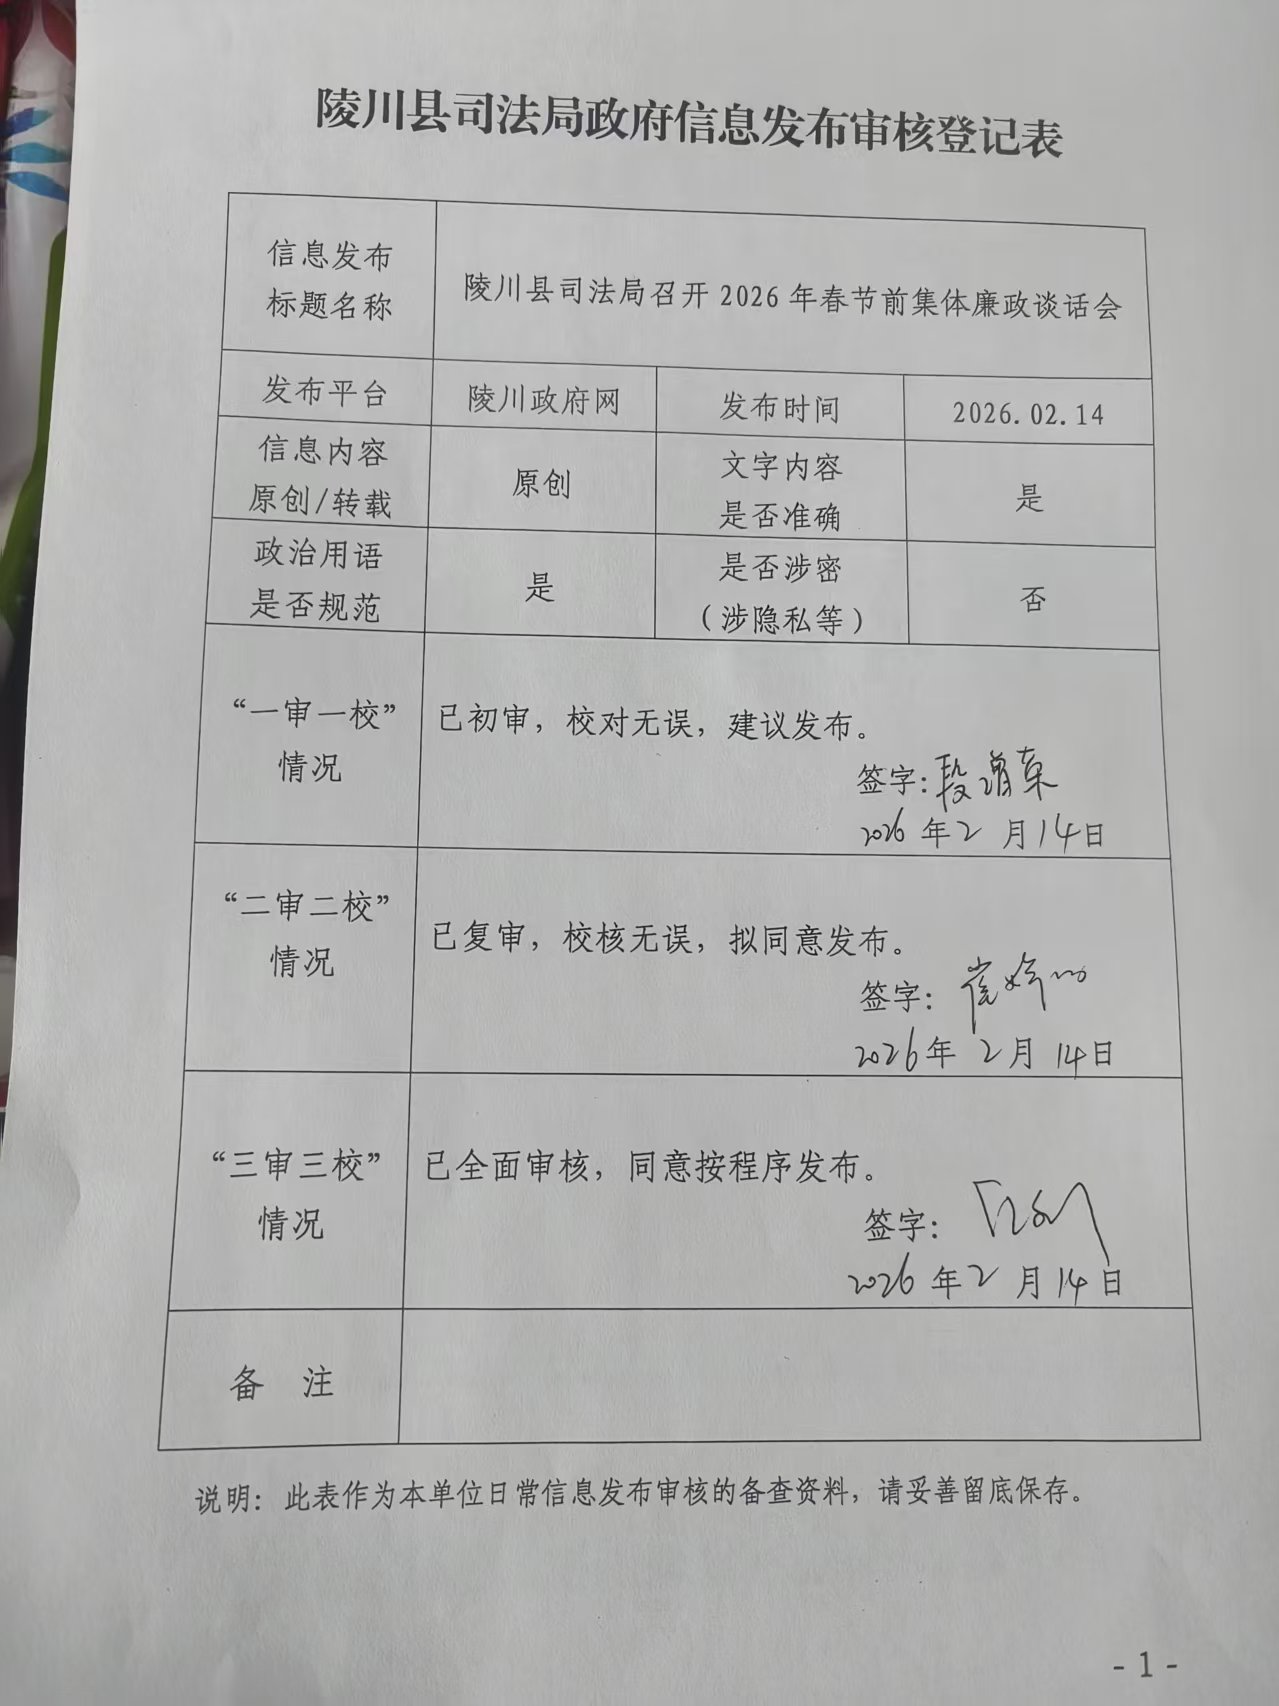 陵川县司法局政府信息发布审核登记表
信息发布
标题名称
陵川县司法局召开 2026 年春节前集体廉政谈话会
发布平台
陵川政府网
发布时间
2026.02.14
信息内容
原创/转载
原创
文字内容
是否准确
是
政治用语
是否规范
是
是否涉密
（涉隐私等）
否
“一审一校”
情况
已初审，校对无误，建议发布。
签字:段
2026年2月14日
“二审二校”
情况
已复审，校核无误，拟同意发布。
签字:
2026年2月14日
“三审三校”
情况
已全面审核，同意按程序发布。
签字:
2026年2月14日
备 注
说明: 此表作为本单位日常信息发布审核的备查资料，请妥善留底保存。
- 1 -